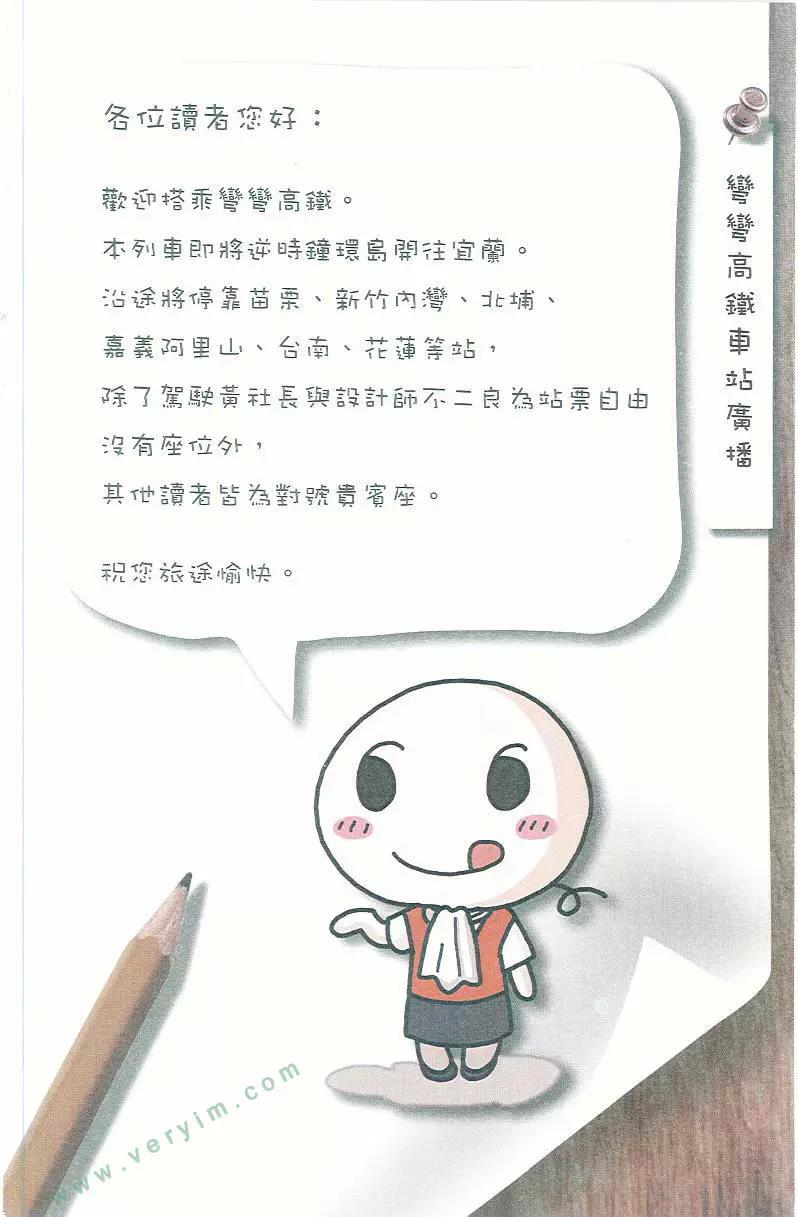 各位讀者您好：
歡迎搭乘彎彎高鐵。
本列車即將逆時鐘環島開往宜蘭。
沿途將停靠苗栗、新竹內灣、北埔、
嘉義阿里山、台南、花蓮等站，
除了駕駛黃社長與設計師不二良為站票自由
沒有座位外，
其他讀者皆為對號貴賓座。
祝您旅途愉快。
彎彎高鐵車站廣播
www.veryim.com